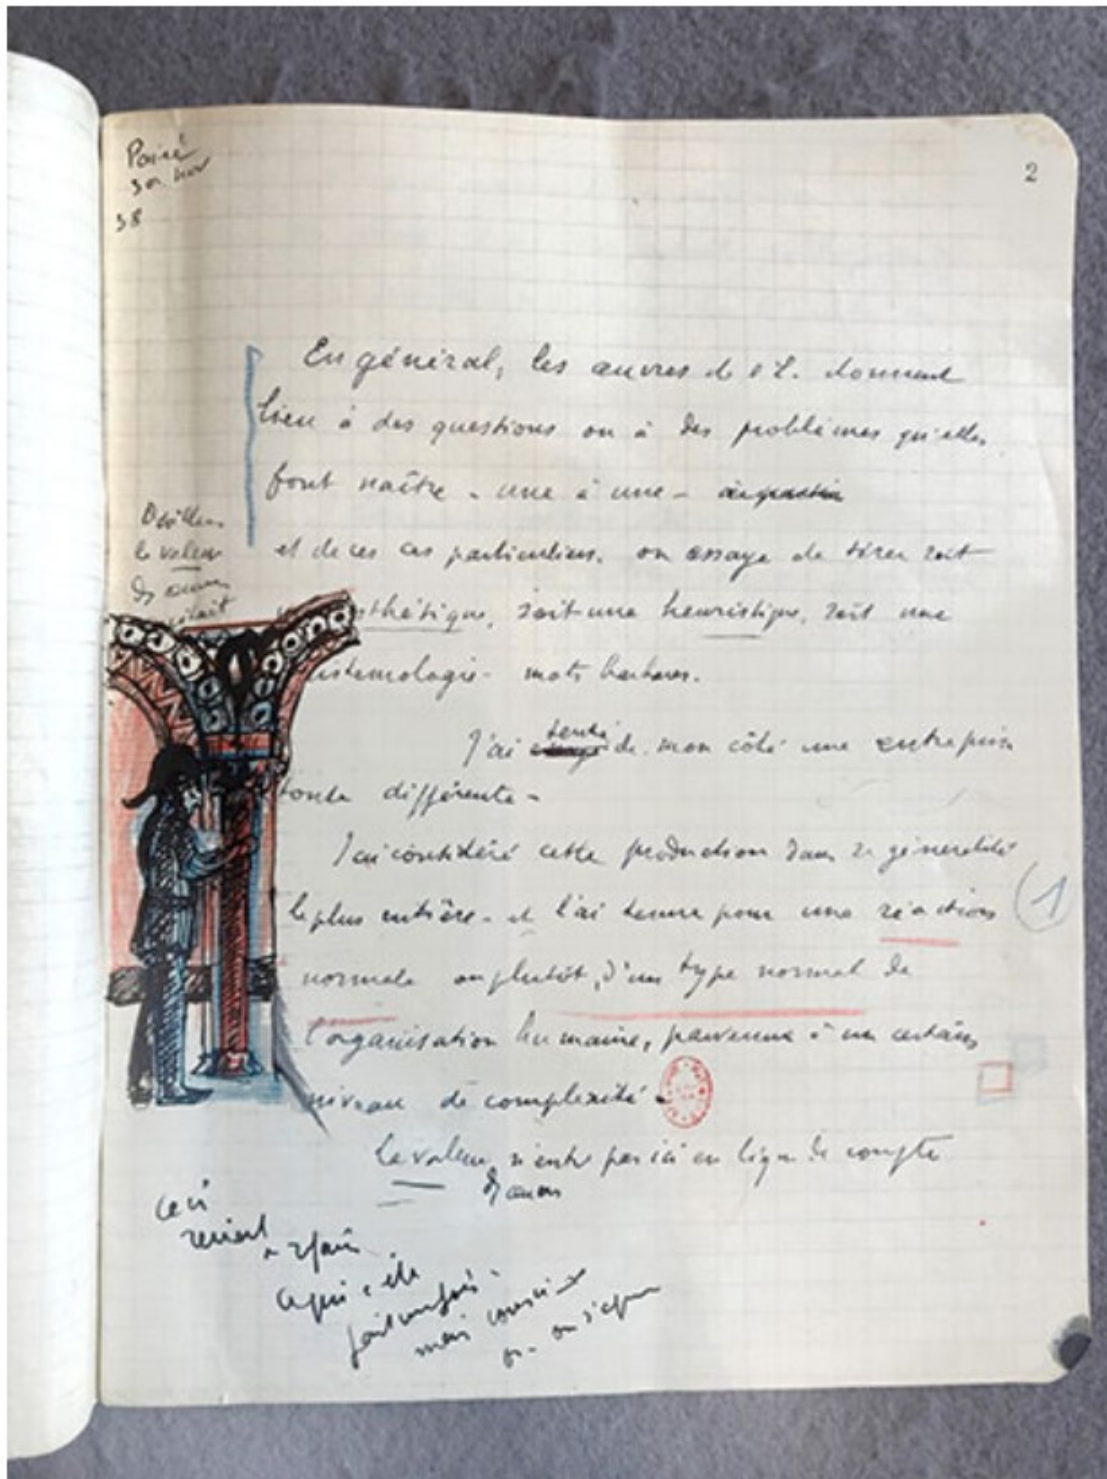 2
En général, les œuvres de l'E. donnent
lieu à des questions ou à des problèmes qu'elles
font naître - une à une -
et de ces cas particuliers, on essaye de tirer soit
sthétique, soit une heuristique, soit une
istemologie - mots barbares.
J'ai tenté de mon côté une entreprise
toute différente -
J'ai considéré cette production dans sa généralité
la plus entière - et l'ai tenue pour une réaction
normale ou plutôt, d'un type normal de
l'organisation humaine, parvenue à un certain
niveau de complexité -
La valeur n'entre pas ici en ligne de compte
la valeur
1
ceci
revient
à refaire
ce qui a été
mais